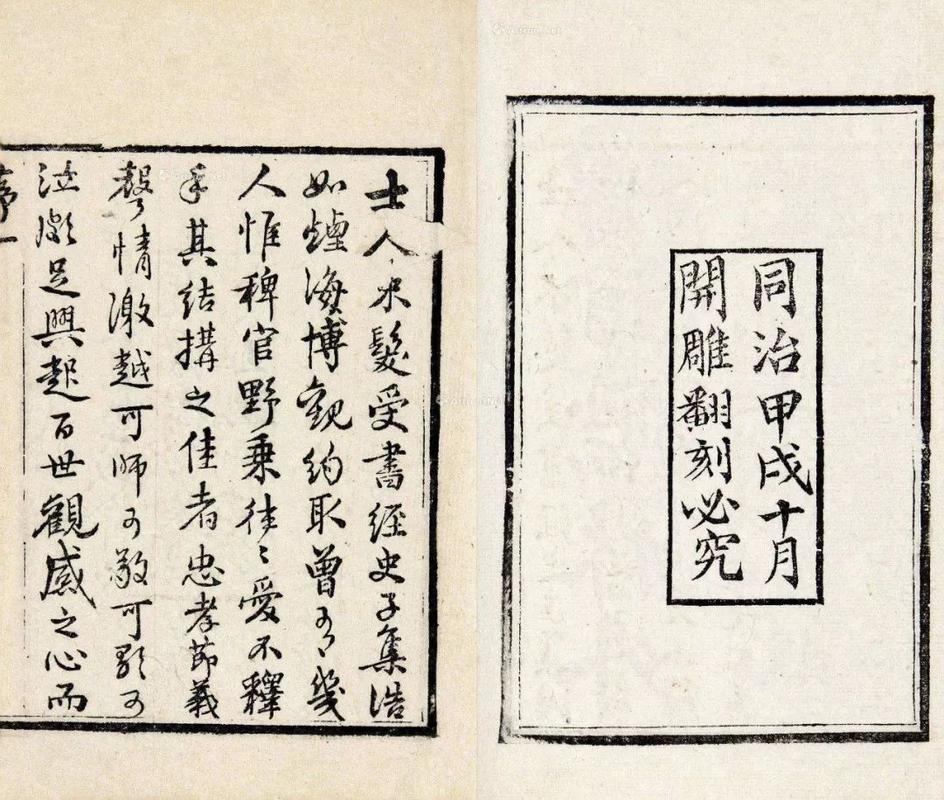 同治甲戌十月
開雕翻刻必究
士人束髮受書經史子集浩
如煙海博觀約取曾有幾
人惟稗官野乘往〻愛不釋
手其結搆之佳者忠孝節義
聲情激越可師可敬可歌可
泣頗足興起百世觀感之心而
序一